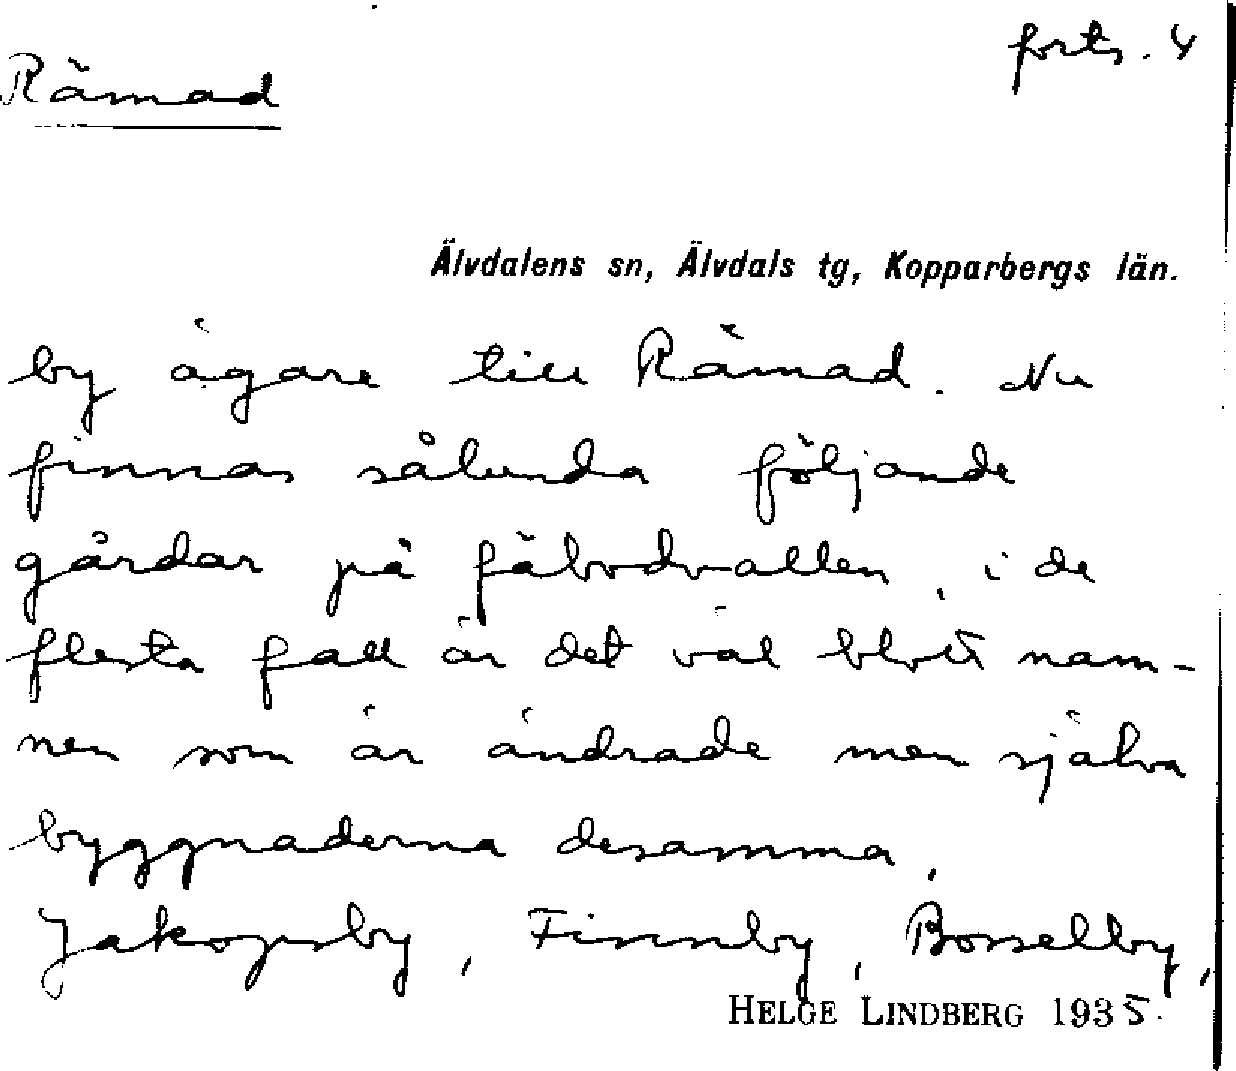 forts. 4
Rämad
Älvdalens sn, Älvdals tg, Kopparbergs län.
by ägare till Rämad. Nu
finnas sålunda följande
gårdar på fäbodvallen, i de
flesta fall är det väl blott nam-
nen som är ändrade men själva
byggnaderna desamma,
Jakopsby, Finnby, Bosselby,
HELGE LINDBERG 1935.